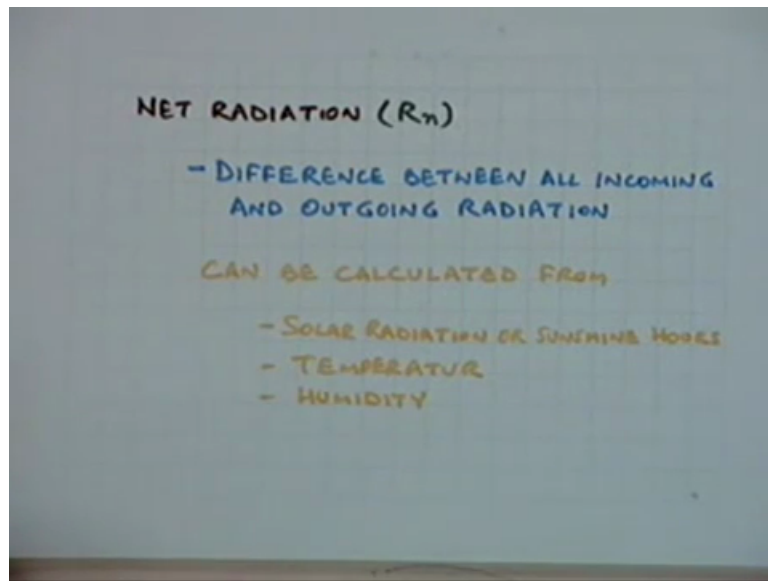 NET RADIATION (Rn)
- DIFFERENCE BETWEEN ALL INCOMING
AND OUTGOING RADIATION
CAN BE CALCULATED FROM
- SOLAR RADIATION OR SUNSHINE HOURS
- TEMPERATUR
- HUMIDITY